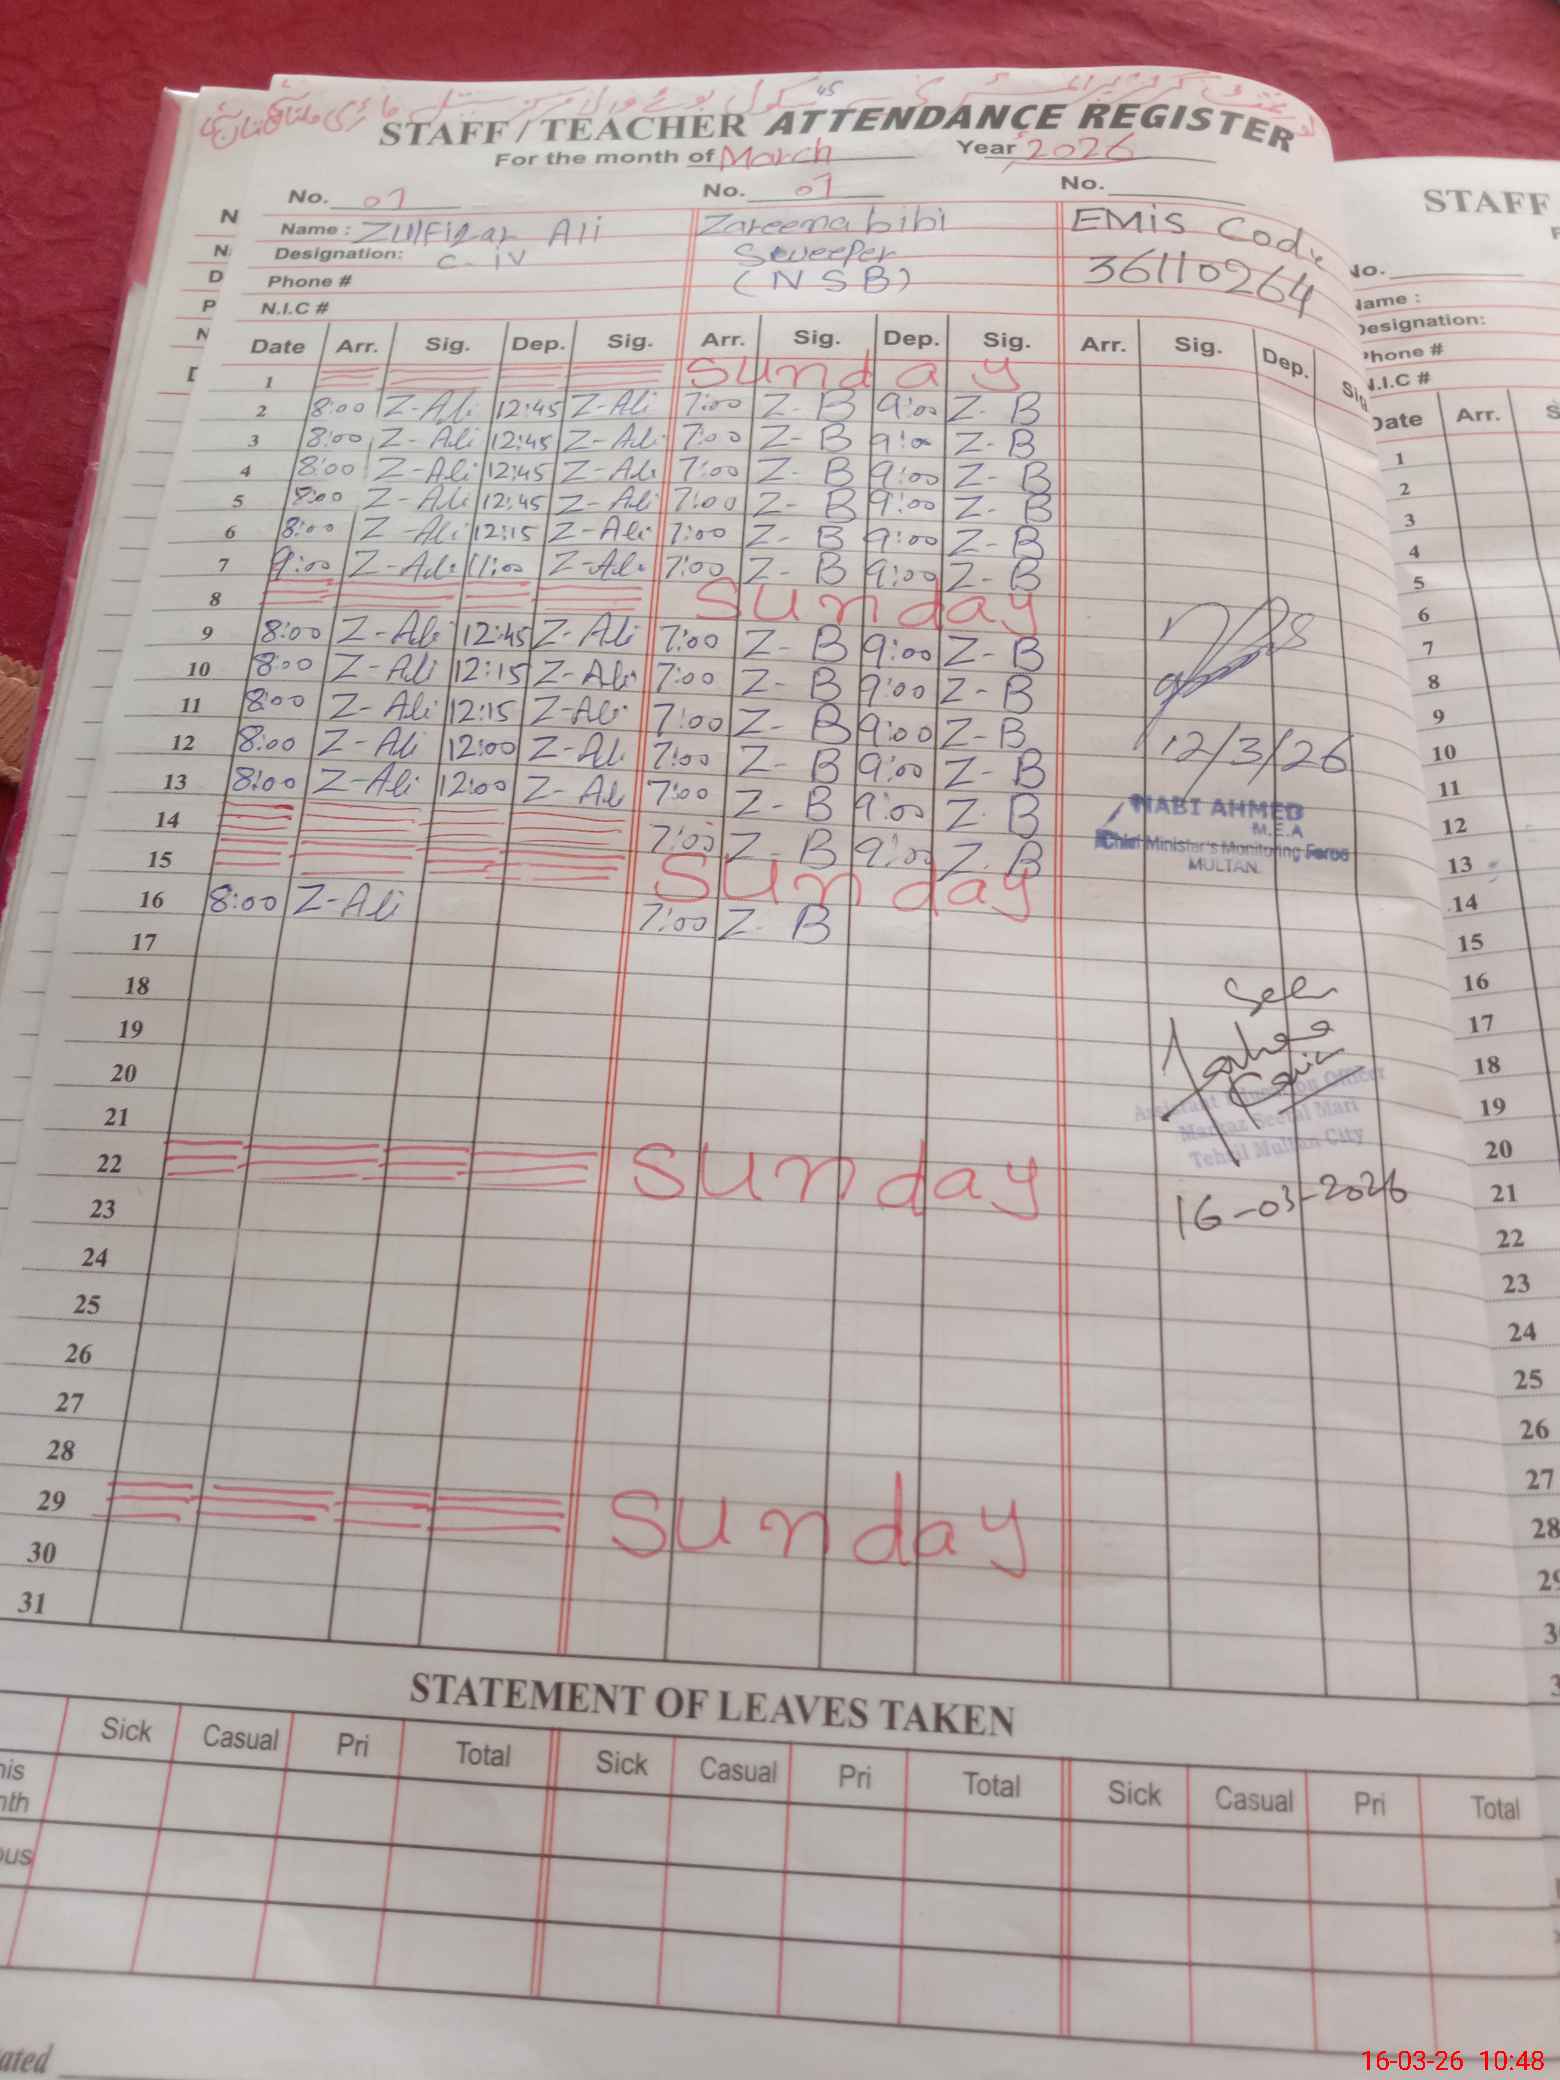 STAFF / TEACHER ATTENDANCE REGISTER
For the month of March Year 2026
No. 01 No. 01 No.
Name : Zulfiqar Ali Zareena bibi EMIS Code
Designation: C-iv Sweeper 36110264
Phone # (NSB)
N.I.C #
Date Arr. Sig. Dep. Sig. Arr. Sig. Dep. Sig. Arr. Sig. Dep. Sig
1 Sunday
2 8:00 Z-Ali 12:45 Z-Ali 7:00 Z-B 9:00 Z-B
3 8:00 Z-Ali 12:45 Z-Ali 7:00 Z-B 9:00 Z-B
4 8:00 Z-Ali 12:45 Z-Ali 7:00 Z-B 9:00 Z-B
5 8:00 Z-Ali 12:45 Z-Ali 7:00 Z-B 9:00 Z-B
6 8:00 Z-Ali 12:15 Z-Ali 7:00 Z-B 9:00 Z-B
7 9:00 Z-Ali 11:00 Z-Ali 7:00 Z-B 9:00 Z-B
8 Sunday
9 8:00 Z-Ali 12:45 Z-Ali 7:00 Z-B 9:00 Z-B
10 8:00 Z-Ali 12:15 Z-Ali 7:00 Z-B 9:00 Z-B
11 8:00 Z-Ali 12:15 Z-Ali 7:00 Z-B 9:00 Z-B
12 8:00 Z-Ali 12:00 Z-Ali 7:00 Z-B 9:00 Z-B
13 8:00 Z-Ali 12:00 Z-Ali 7:00 Z-B 9:00 Z-B
14 7:00 Z-B 9:00 Z-B
15 Sunday
16 8:00 Z-Ali 7:00 Z-B
17
18
19
20
21
22 Sunday
23
24
25
26
27
28
29 Sunday
30
31
12/3/26
NABI AHMED
M.E.A
Chief Minister's Monitoring Force
MULTAN
Seen
Assistant Education Officer
Markaz Seetal Mari
Tehsil Multan City
16-03-2026
STATEMENT OF LEAVES TAKEN
Sick Casual Pri Total Sick Casual Pri Total Sick Casual Pri Total
STAFF
No.
Name :
Designation:
Phone #
N.I.C #
Date Arr.
1
2
3
4
5
6
7
8
9
10
11
12
13
14
15
16
17
18
19
20
21
22
23
24
25
26
27
28
16-03-26 10:48